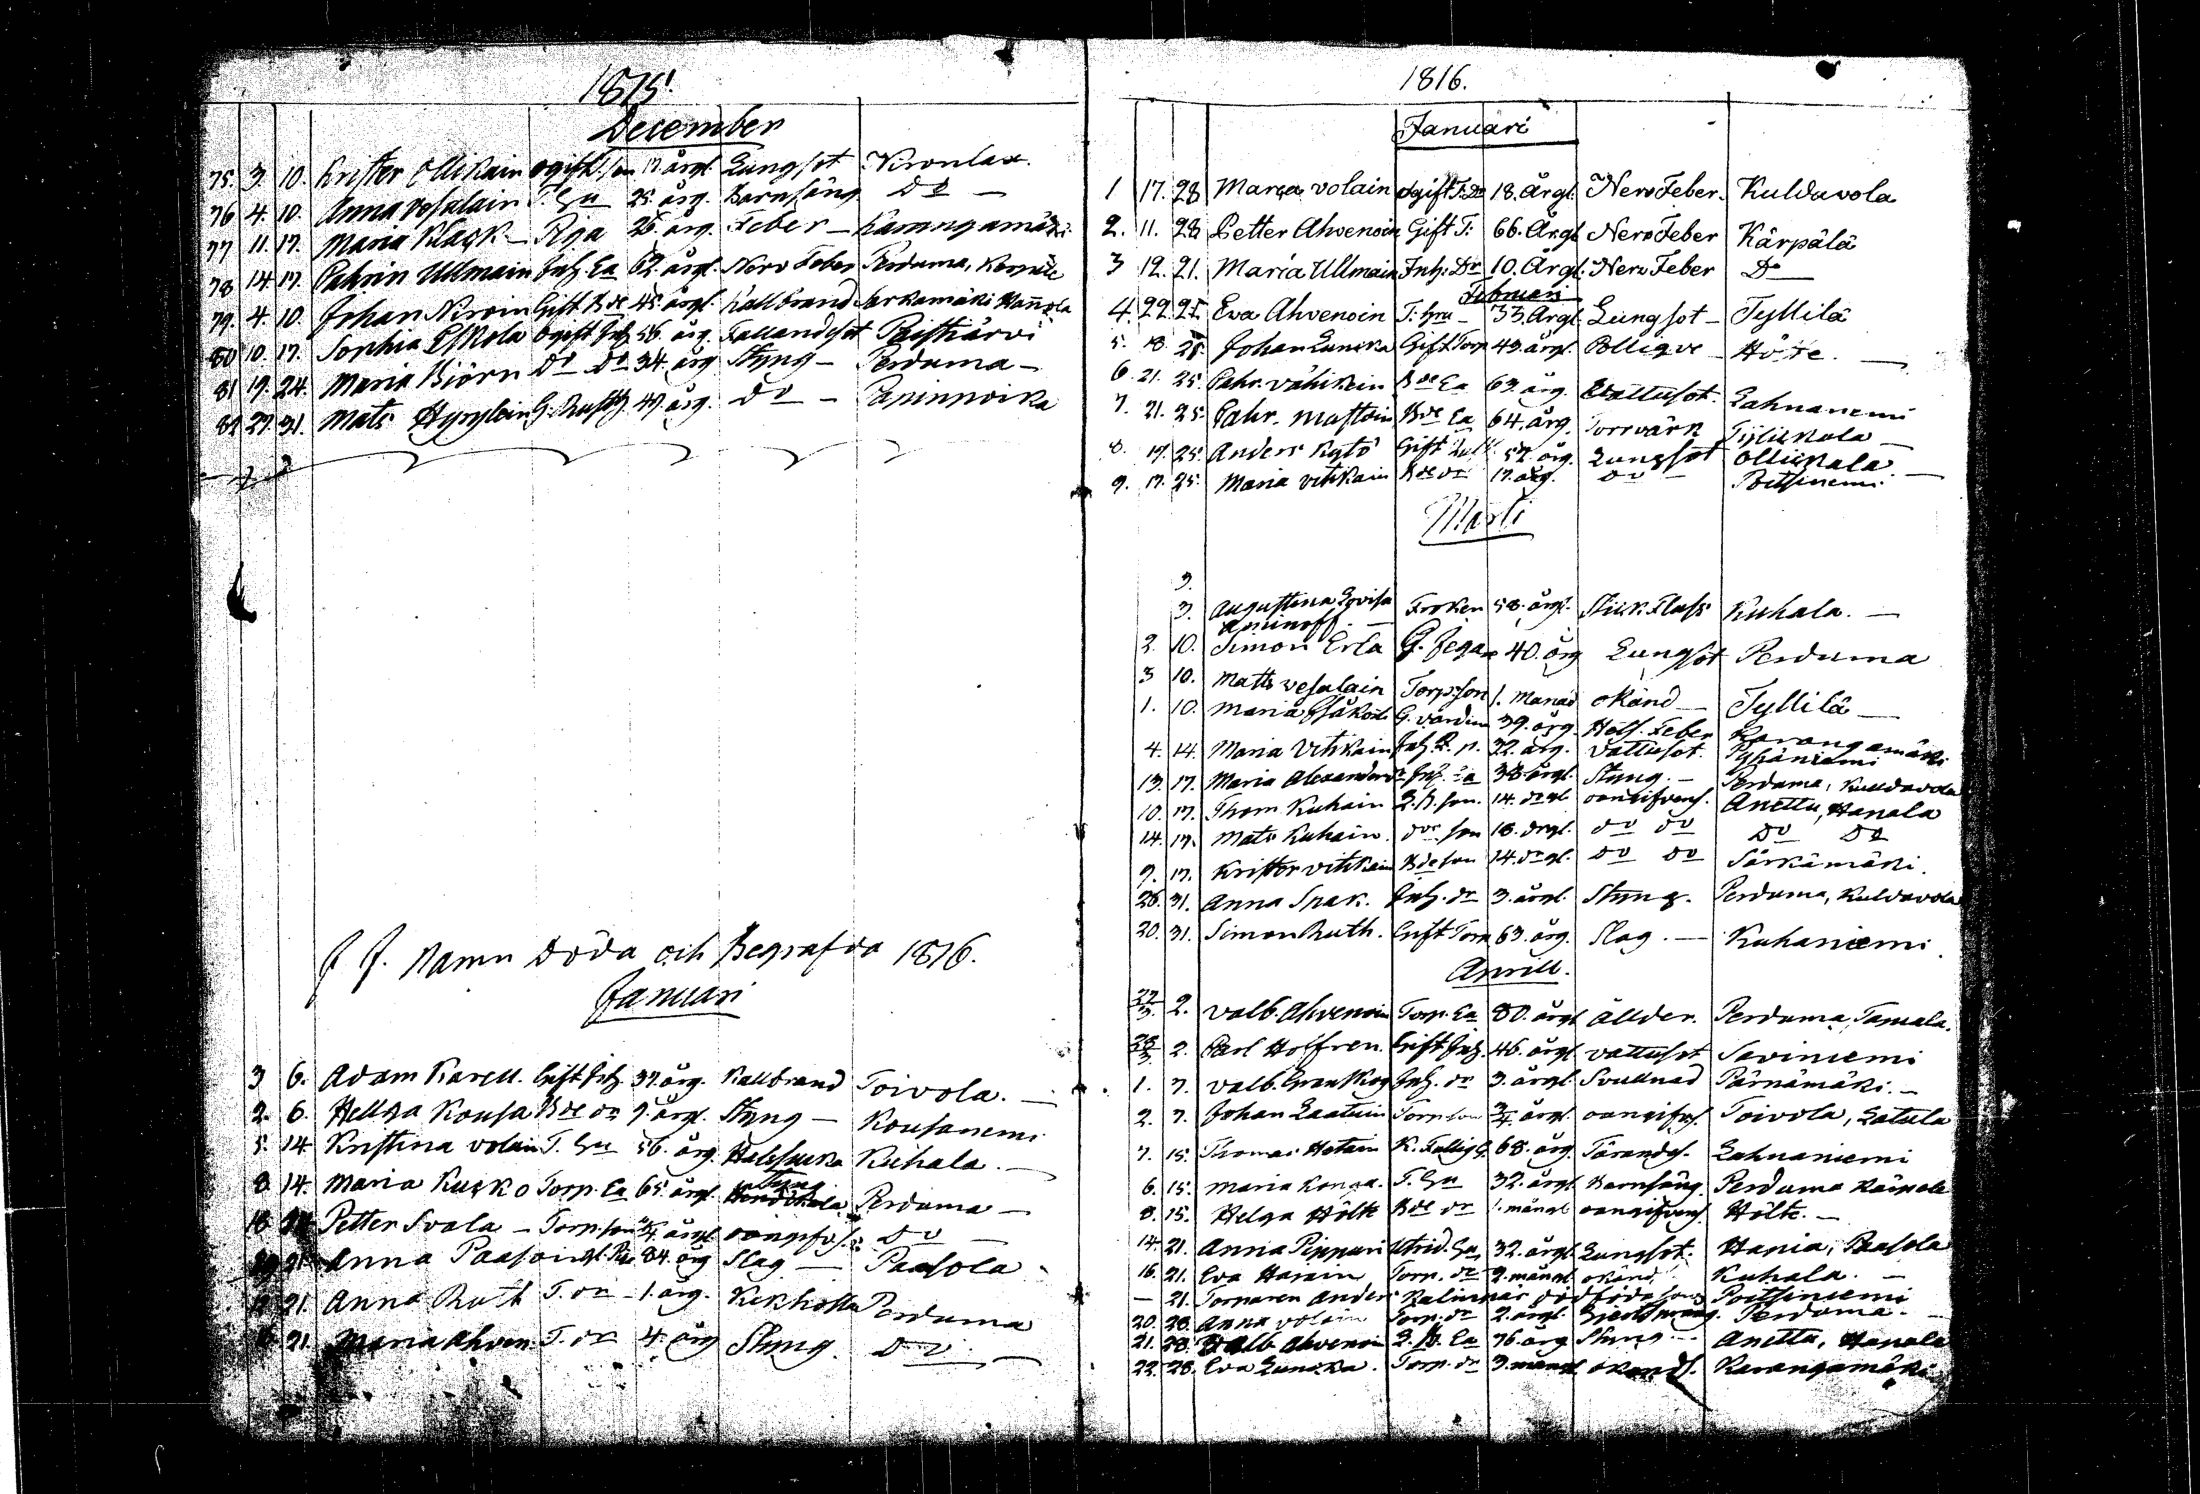 1815.
December
75. 3. 10. Krister Ollikain ogift T. son 17. årgl. Lungsot Kronlax.
76 4. 10. Anna Vesalain T. Hu 25. årg. Barnsäng Do —
77 11. 17. Maria Klask — Piga 26. årg. Feber — Karangamäki
78 14 17. Cathrin Ullmain Inh. Ea 62. årgl. Nerv Feber Perduma,
79. 4. 10. Johan Kiroin Gift Bde 45. årgl. Kallbrand Sarkamäki Hanola
80 10. 17. Sophia Eskola ogift Inh 58. årg. Fallandesot Paistjärvi
81 19. 24. Maria Björn Do Do 34. årg Styng — Perduma —
82 27. 31. Mats Hyrylain G. 47. årg. Do —
J. J. Namn Döda och Begrafda 1816.
Januari
3 6. Adam Karell. Gift Inh 37. årg. Kallbrand Toivola. —
2. 6. Hellga Kousa Bde dr 9. årgl. Styng — Kousanemi
5. 14. Kristina Volain T. Hu 56. årg. Halssjuka Kuhala. —
8. 14. Maria Kusko Torp. Ea 65. årgl. Styng Perduma —
18. Petter Svala — Torp. son 3/4 årgl. Do —
21. Anna Paasoin 84. årg Slag — Paasola
21. Anna Ruth T. dr — 1. årg. Kikhosta Perduma
21. Maria Ahven T. dr 4. årg Styng. Do —
1816.
Januari
1 17. 28 Maria Volain ogift T. Dr 18. Årgl. Nerv Feber. Kuldavola
2. 11. 28 Petter Ahvenoin Gift T: 66. Årgl Nerv Feber Kärpälä
3 12. 21. Maria Ullmain Inh: Dr 10. Årgl. Nerv Feber Do —
Februari
4. 22. 25. Eva Ahvenoin T: hru — 33. Årgl. Lungsot — Tyllilä
5. 18. 25. Johan Luncka Gift Torp 43. årgl. Collique — Höte. —
6. 21. 25. Cathr. Vähikain Bde Ea 63. årg. Vattusot. Lahnanemi
7. 21. 25. Cathr. Mustoin Bde Ea 64. årg. Torrvärk
8. 17. 25. Anders Kytö Gift 57. årg. Lungsot Ollikkala —
9. 17. 25. Maria Vitikain Bde dr 17. årg. Do — Poitsinemi
Marti
3.
3. Augustina Lovisa Fröken 58. årgl. Stick. Fluss Kuhala. —
Aminoff. —
2. 10. Simon Erla G. Jegar 40. årg Lungsot Perduma
3 10. Matts Vesalain Torp. son 1. Månad okänd — Tyllilä —
1. 10. Maria G. Värdin 39. årg. Feber Karangamäki
4. 14. Maria Vitikain Inh. 32. årg. Vattusot. Pyhäniemi
13. 17. Maria Alexandersdr Inh. Ea 38. årgl. Styng. — Perduma, Kuldavola
10. 17. Thom Kuhain L. B. son. 14. dagl oangifven. Anettu, Hanala
14. 17. Mats Kuhain. dor son 18. dagl. do do Do Do
9. 17. Krister Vitikain Bde son 14. dagl. do do Särkämäki.
26. 31. Anna Spak. Inh. dr 3. årgl. Styng. Perduma, Kuldavola
20. 31. Simon Ruth. Gift Torp 63. årg. Slag. — Kuhaniemi.
Aprill.
22/3. 2. Valb. Ahvenoin Torp. Ea 80. årgl ållder. Perduma, Tamala.
2. Carl Hoffren. Gift Inh. 46. årgl. Vattusot Saviniemi
1. 7. Valb. Granskog Inh. dr 3. årgl Svullnad Pärnämäki. —
2. 7. Johan Laatuin Torp. son 3/4 årgl. oangifv. Toivola, Latula
7. 15. Thomas Hatain K. Fattigh. 68. årg. Tärandes. Lahnaniemi
6. 15. Maria T. Hu 32. årgl Barnsäng. Perduma
8. 15. Helga Hölte Bde dr 1. mångl oangifven. Hölte. —
14. 21. Anna Pippuri Utrid. Hu 32. årgl. Lungsot. Hania, Paasola
16. 21. Eva Harain Torp. dr 2. mångl okänd. Kuhala. —
— 21. Torparen Anders dödfödd son Poitsiniemi
20. 28. Anna Volain Torp. dr 2. årgl. Perduma.
21. 28. Valb. Ahvenoin L. B. Ea 76. årg Styng. — Anettu, Hanala
22. 28. Eva Luncka. Torp. dr 3. mångl okänd. Karangamäki